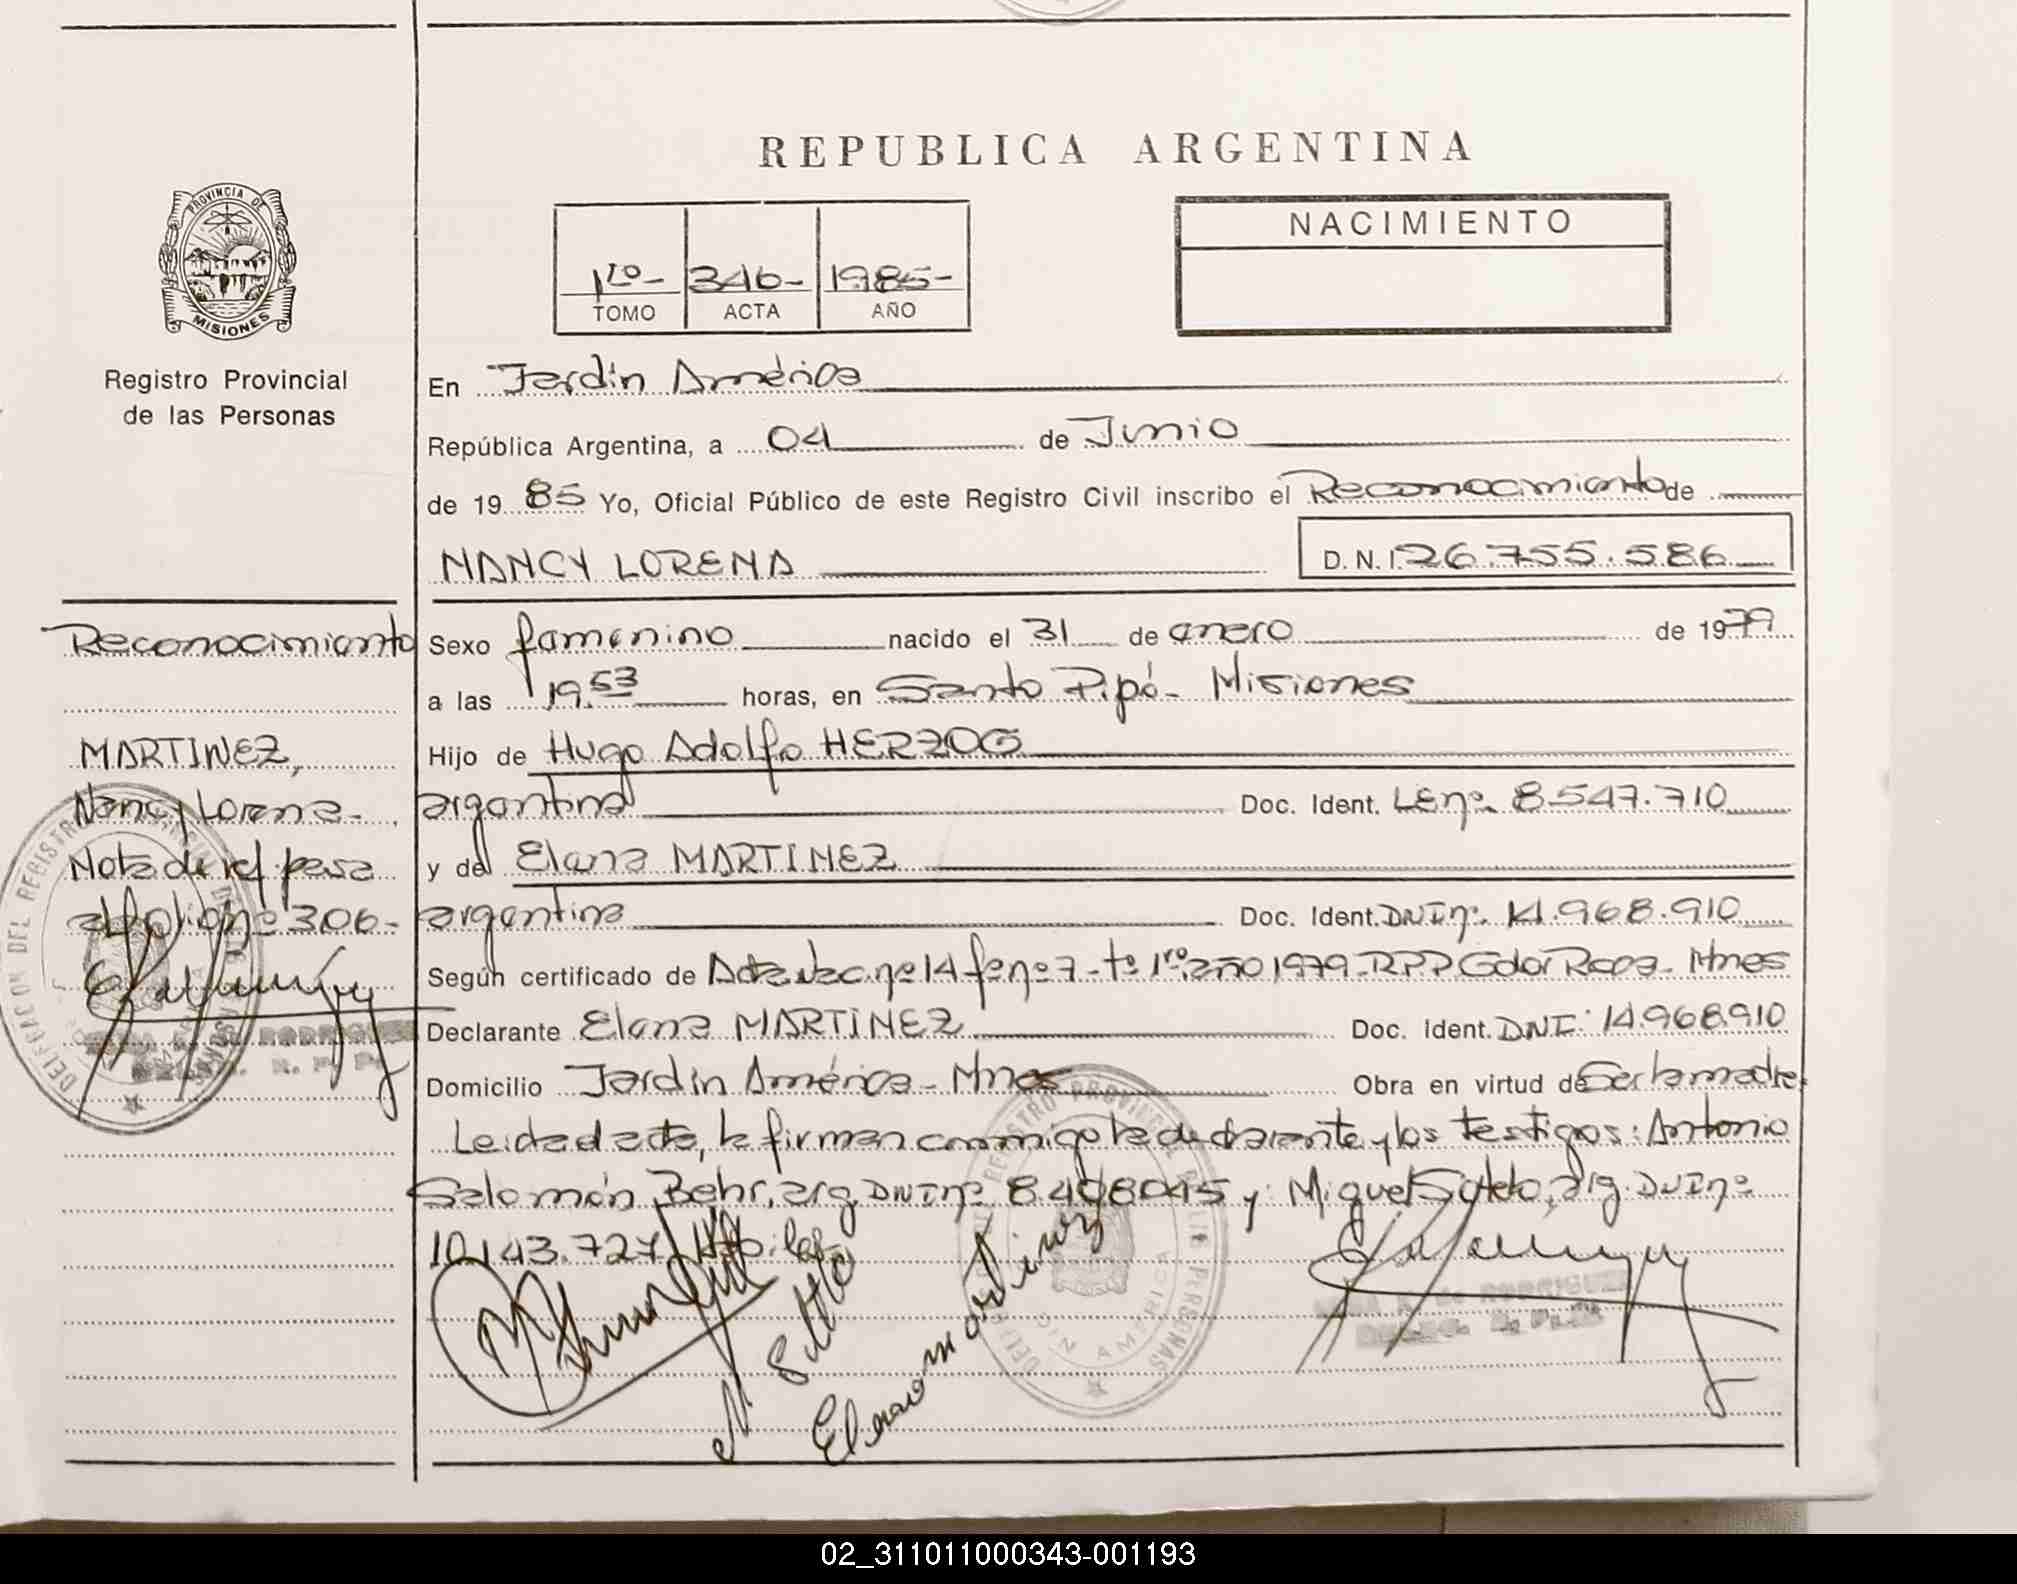 REPUBLICA ARGENTINA
PROVINCIA DE
MISIONES
Registro Provincial
de las Personas
1ro- 346- 1985-
TOMO ACTA AÑO
NACIMIENTO
En Jardín América
República Argentina, a 04 de Junio
de 1985 Yo, Oficial Público de este Registro Civil inscribo el Reconocimiento de
NANCY LORENA D.N.I. 26.755.586
Sexo femenino nacido el 31 de enero de 1979
a las 19.53 horas, en Santo Pipó- Misiones
Hijo de Hugo Adolfo HERZOG
argentina Doc. Ident. LEnº 8.547.710
y de Elena MARTINEZ
argentina Doc. Ident. DNInº 14.968.910
Según certificado de Acta Nac. nº 14 fº nº 7- tº 1ro, año 1979-RPP Gdor Roca- Mnes
Declarante Elena MARTINEZ Doc. Ident. DNI: 14.968.910
Domicilio Jardín América- Mnes Obra en virtud de Ser la madre.
Leída el acta, la firman conmigo la declarante y los testigos: Antonio
Salomón Behr, arg. DNInº 8.408045 y Miguel Sotelo, arg. DNInº
10.143.727 Hábiles
Elena martinez
RODRIGUEZ
Reconocimiento
MARTINEZ,
Nancy Lorena-
Nota de ref. pasa
al folio nº 306-
RODRIGUEZ
02_311011000343-001193